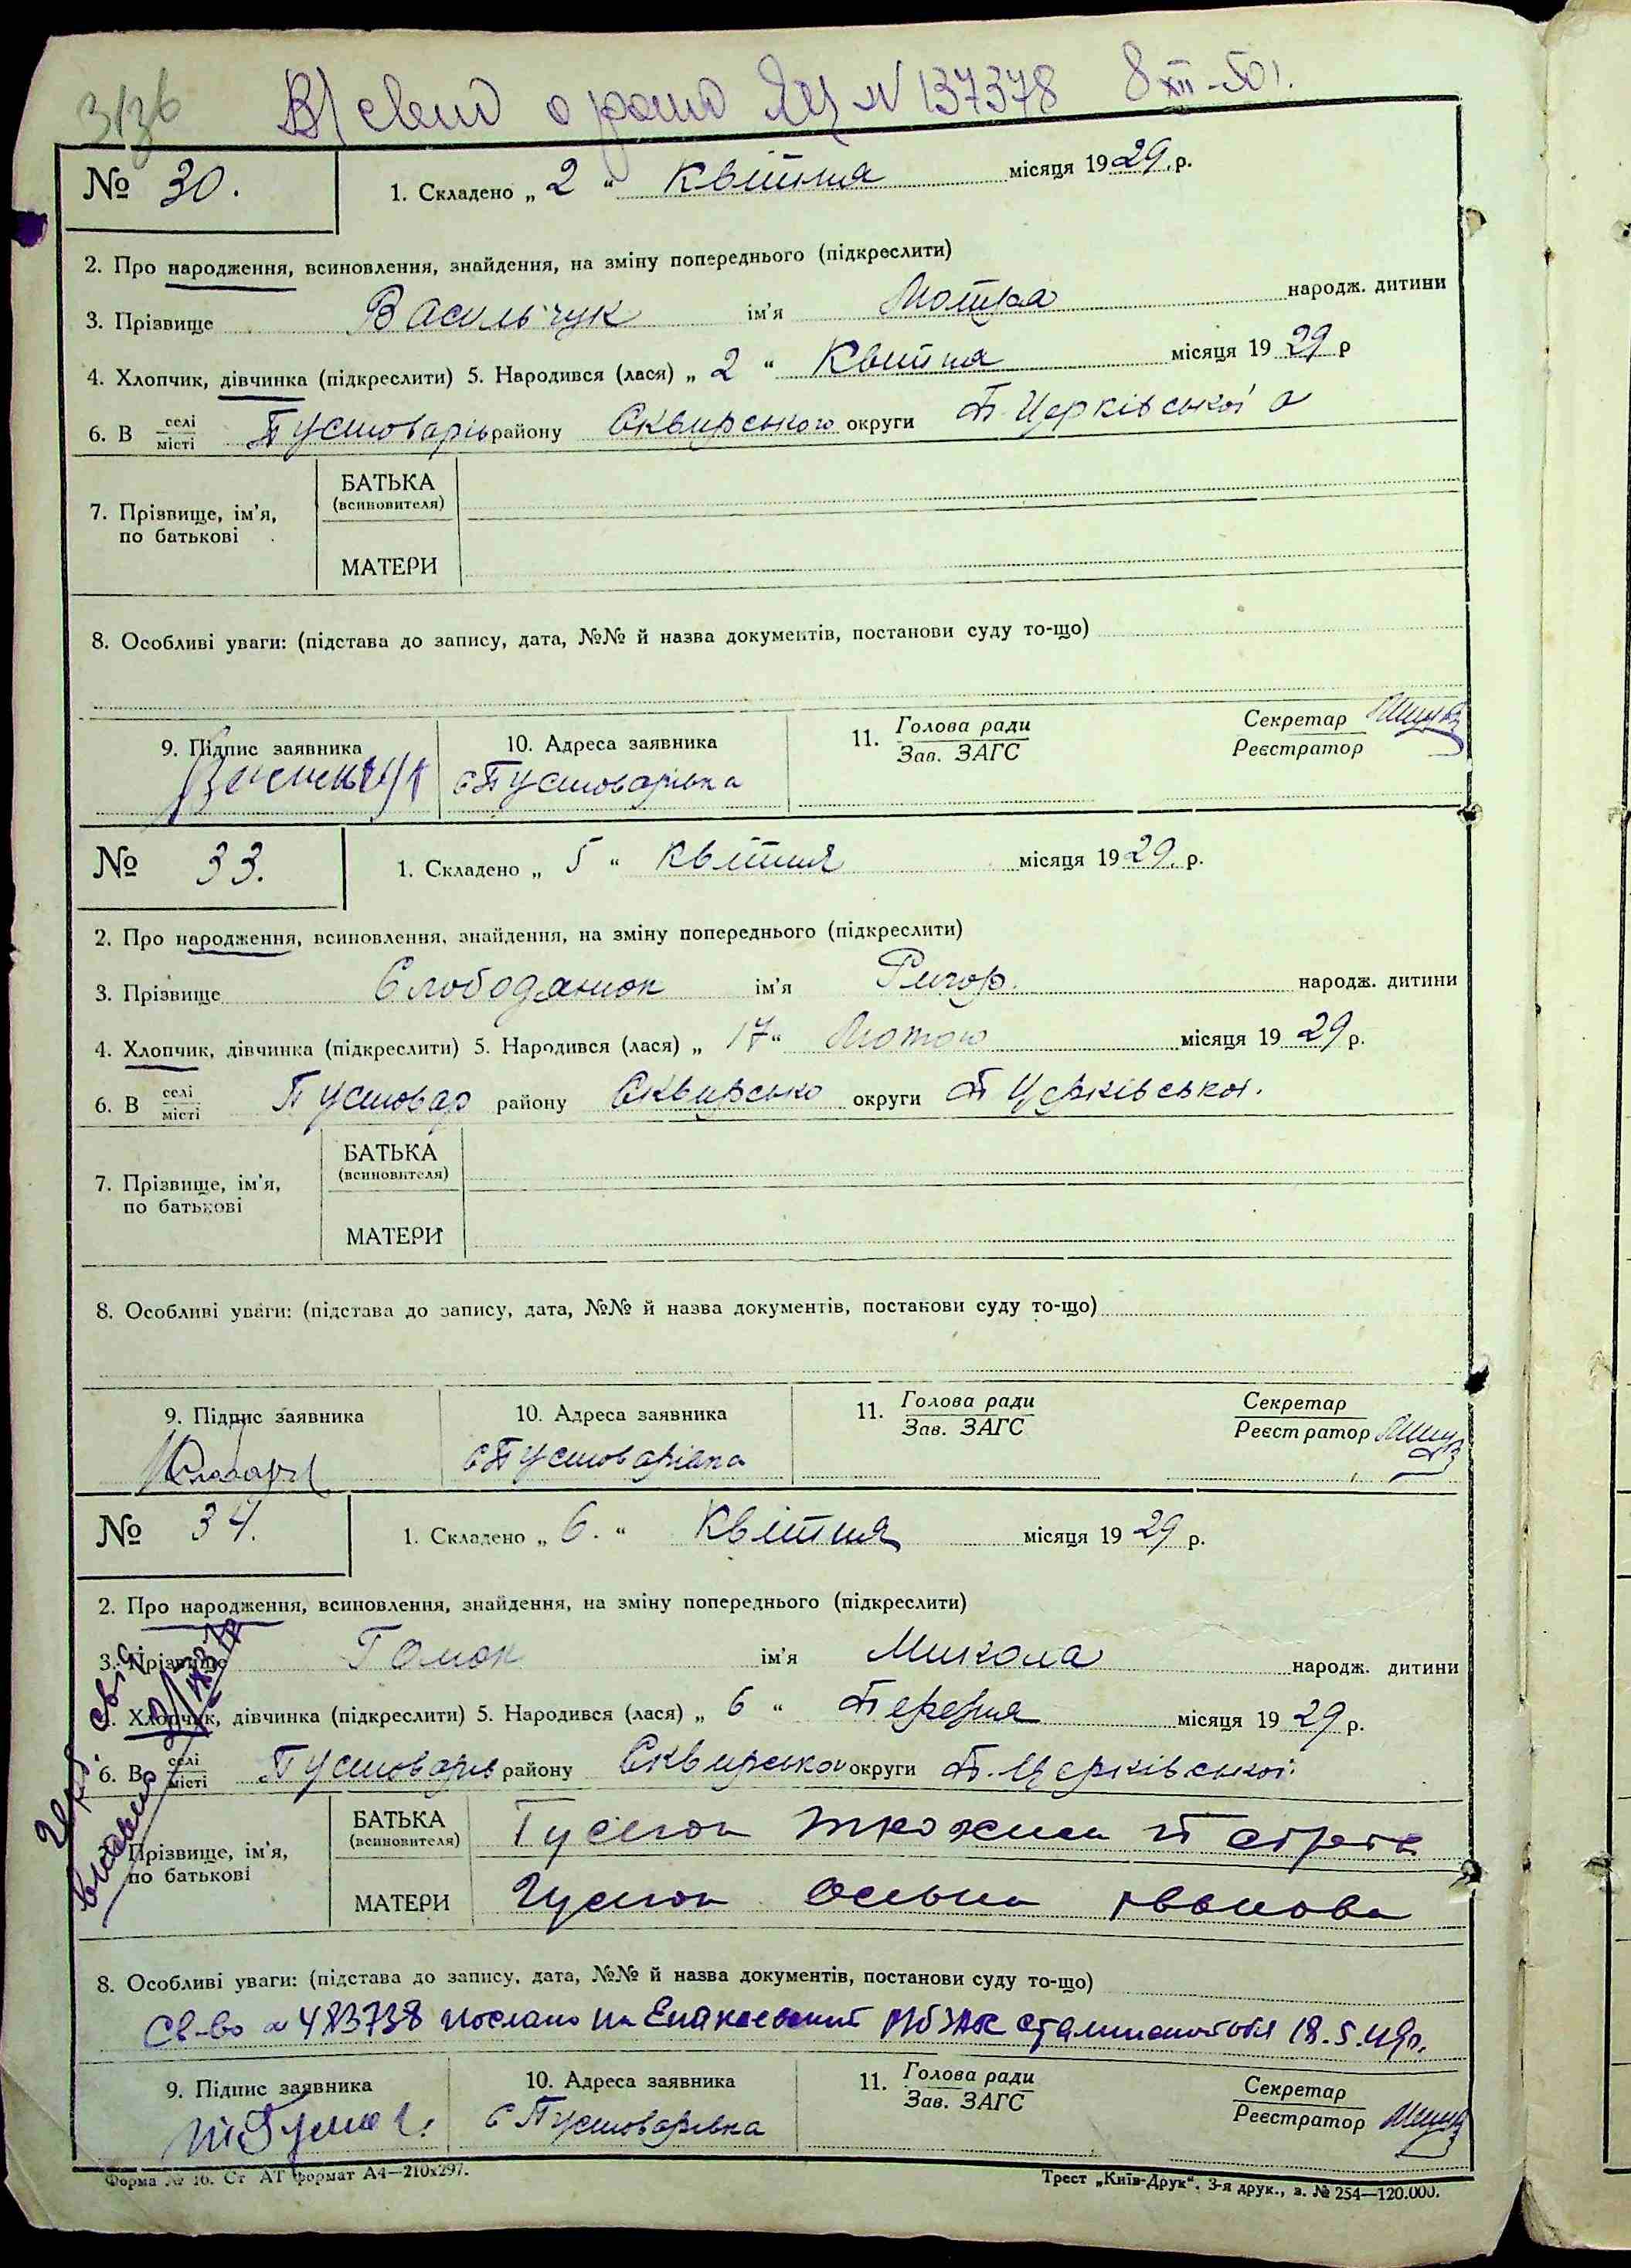 N 137378 8 XII-50 г.
№ 30. 1. Складено „ 2 “ Квітня місяця 1929. р.
2. Про народження, всиновлення, знайдення, на зміну попереднього (підкреслити)
3. Прізвище Васильчук ім'я Мотря народж. дитини
4. Хлопчик, дівчинка (підкреслити) 5. Народився (лася) „ 2 “ Квітня місяця 1929 р
6. В селі/місті Пустоварів району Сквирського округи Б. Церківської о
7. Прізвище, ім'я, по батькові
БАТЬКА (всиновителя)
МАТЕРИ
8. Особливі уваги: (підстава до запису, дата, №№ й назва документів, постанови суду то-що)
9. Підпис заявника 10. Адреса заявника 11. Голова ради/Зав. ЗАГС Секретар/Реєстратор
с Пустоварівка
№ 33. 1. Складено „ 5 “ Квітня місяця 1929. р.
2. Про народження, всиновлення, знайдення, на зміну попереднього (підкреслити)
3. Прізвище Слободянюк ім'я Григор. народж. дитини
4. Хлопчик, дівчинка (підкреслити) 5. Народився (лася) „ 17 “ Лютого місяця 1929 р.
6. В селі/місті Пустовар району Сквирсько округи Б Церківської.
7. Прізвище, ім'я, по батькові
БАТЬКА (всиновителя)
МАТЕРИ
8. Особливі уваги: (підстава до запису, дата, №№ й назва документів, постанови суду то-що)
9. Підпис заявника 10. Адреса заявника 11. Голова ради/Зав. ЗАГС Секретар/Реєстратор
с Пустоварівка
№ 34. 1. Складено „ 6. “ Квітня місяця 1929 р.
2. Про народження, всиновлення, знайдення, на зміну попереднього (підкреслити)
3. Прізвище ім'я Микола народж. дитини
4. Хлопчик, дівчинка (підкреслити) 5. Народився (лася) „ 6 “ Березня місяця 1929 р.
6. В селі/місті Пустоварів району Сквирсько округи Б. Церківської
7. Прізвище, ім'я, по батькові
БАТЬКА (всиновителя)
МАТЕРИ
8. Особливі уваги: (підстава до запису, дата, №№ й назва документів, постанови суду то-що)
Св-во N 483738 послано 18.5.49р.
9. Підпис заявника 10. Адреса заявника 11. Голова ради/Зав. ЗАГС Секретар/Реєстратор
с Пустоварівка
Форма № 16. Ст АТ формат А4—210x297. Трест „Київ-Друк“. 3-я друк., з. № 254—120.000.